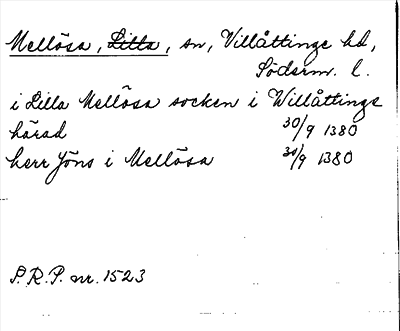 Mellösa, Lilla, sn, Villåttinge hd,
Söderm. l.
i Lilla Mellösa socken i Willåttings
härad 30/9 1380
herr Jöns i Mellösa 30/9 1380
S.R.P. nr. 1523